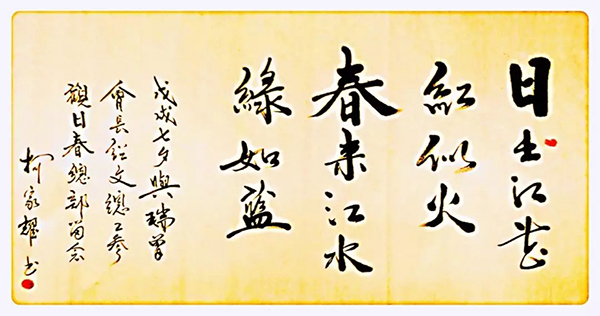 日出江花
紅似火
春来江水
綠如藍
戊戌七夕與瑞曾
會長經文總工參
觀日春總部留念
柯家耀書